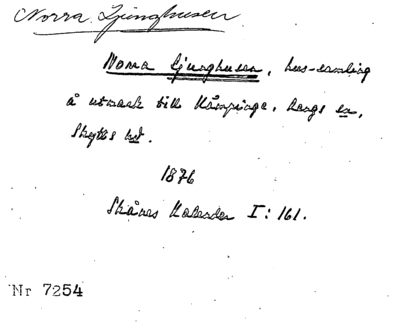 Norra Ljunghusen
Norra Ljunghusen, hus-samling
å utmark till Kämpinge, Rengs sn,
Skytts hd.
1876
Skånes Kalender I: 161.
Nr 7254